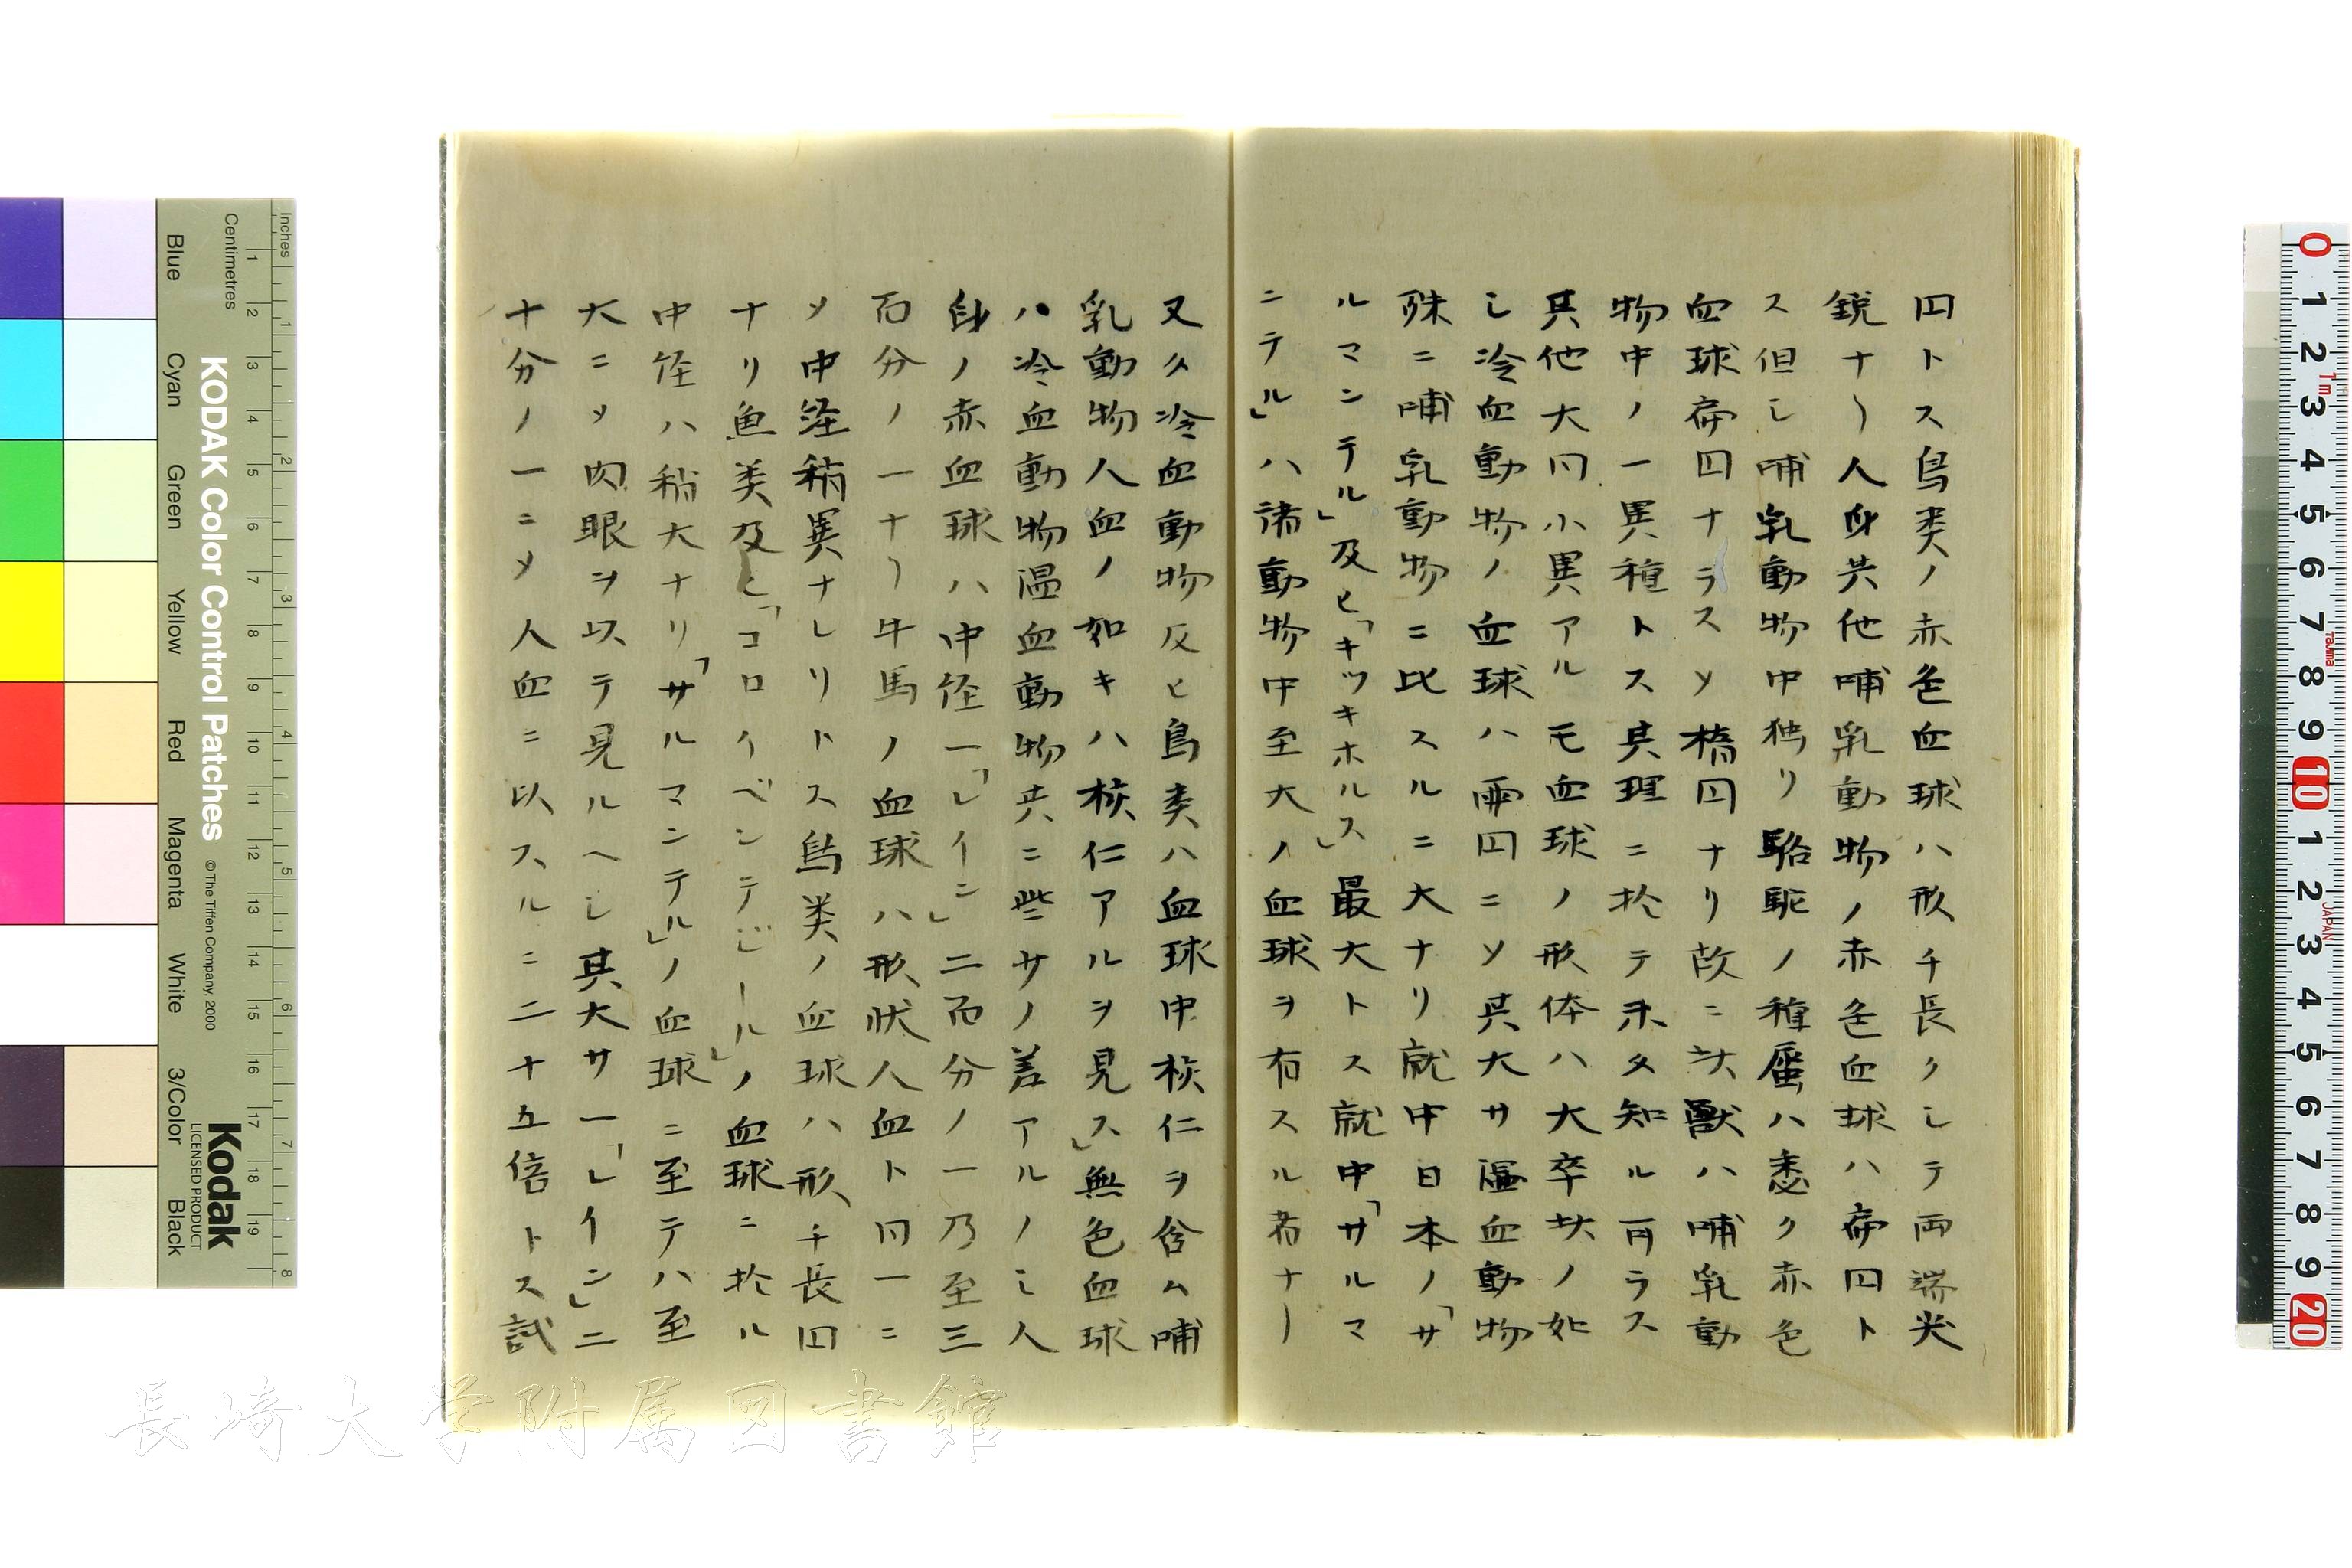 円トス鳥类ノ赤色血球ハ形チ長クシテ両端尖
鋭ナリ人身共他哺乳動物ノ赤色血球ハ扁円ト
ス但シ哺乳動物中独リ駱駝ノ種屬ハ悉ク赤色
血球扁円ナラスソ橢円ナリ故ニ此獣ハ哺乳動
物中ノ一異種トス其理ニ於テ未タ知ル可ラス
其他大同小異アル毛血球ノ形体ハ大卒此ノ如
シ冷血動物ノ血球ハ卵円ニソ其大サ温血動物
殊ニ哺乳動物ニ比スルニ大ナリ就中日本ノ「サ
ルマンテル」及ヒ「キツキホルス」最大トス就中「サルマ
ニテル」ハ諸動物中至大ノ血球ヲ有スル者ナリ
又タ冷血動物及ヒ鳥类ハ血球中核仁ヲ含ム哺
乳動物人血ノ如キハ核仁アルヲ見ス」無色血球
ハ冷血動物温血動物共ニ些サノ差アルノミ人
身ノ赤血球ハ中径一「レイン」二百分ノ一乃至三
百分ノ一ナリ牛馬ノ血球ハ形状人血ト同一ニ
ソ中径稍異ナレリトス鳥类ノ血球ハ形チ長円
ナリ魚类及ヒ「コロイベンテビール」ノ血球ニ於ル
中径ハ稍大ナリ「サルマンテル」ノ血球ニ至テハ至
大ニソ肉眼ヲ以テ見ルヘシ其大サ一「レイン」二
十分ノ一ニソ人血ニ以スルニ二十五倍トス試
KODAK Color Control Patches
© The Tiffen Company, 2000
Kodak
LICENSED PRODUCT
Inches
Centimetres
Blue
Cyan
Green
Yellow
Red
Magenta
White
3/Color
Black
1 2 3 4 5 6 7 8 9 10 11 12 13 14 15 16 17 18 19
1 2 3 4 5 6 7 8
0 1 2 3 4 5 6 7 8 9 10 1 2 3 4 5 6 7 8 9 20
1m
Tajima
JAPAN
長崎大学附属図書館